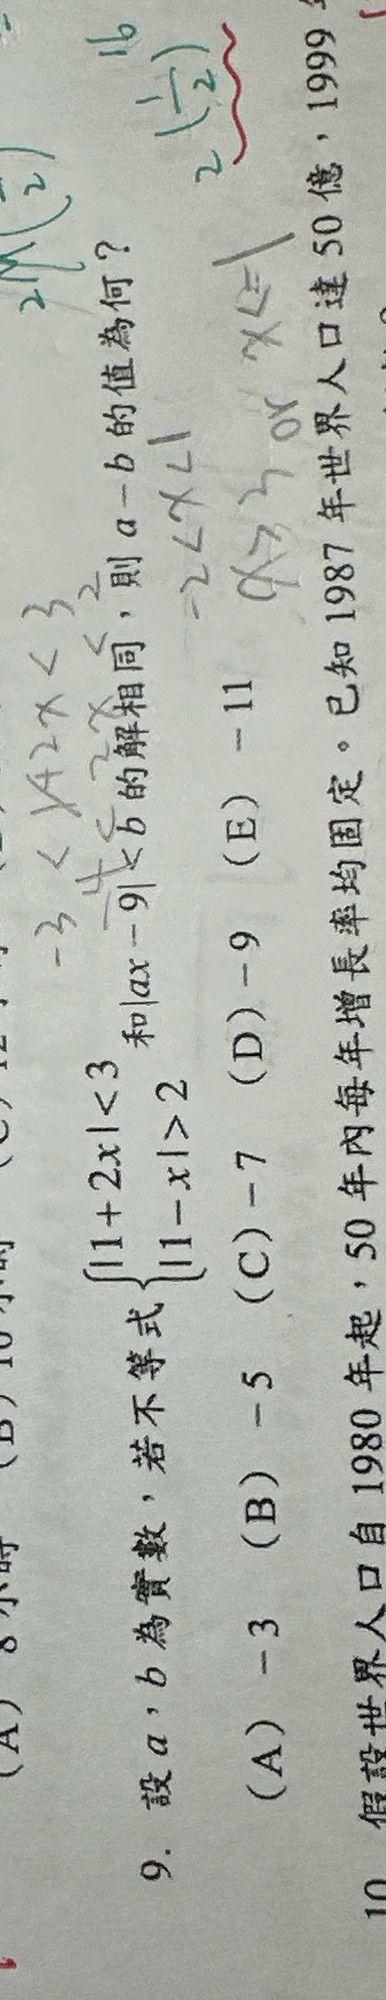 16
2(1/2)
-3 < 1+2x < 3
-4 < 2x < 2
9. 設 a,b 為實數,若不等式 {|1+2x|<3 |1-x|>2 和|ax-9|<b 的解相同,則 a-b 的值為何?
-2<x<1
x>3 or x<-1
(A) -3 (B) -5 (C) -7 (D) -9 (E) -11
10. 假設世界人口自 1980 年起,50 年內每年增長率均固定。已知 1987 年世界人口達 50 億,1999